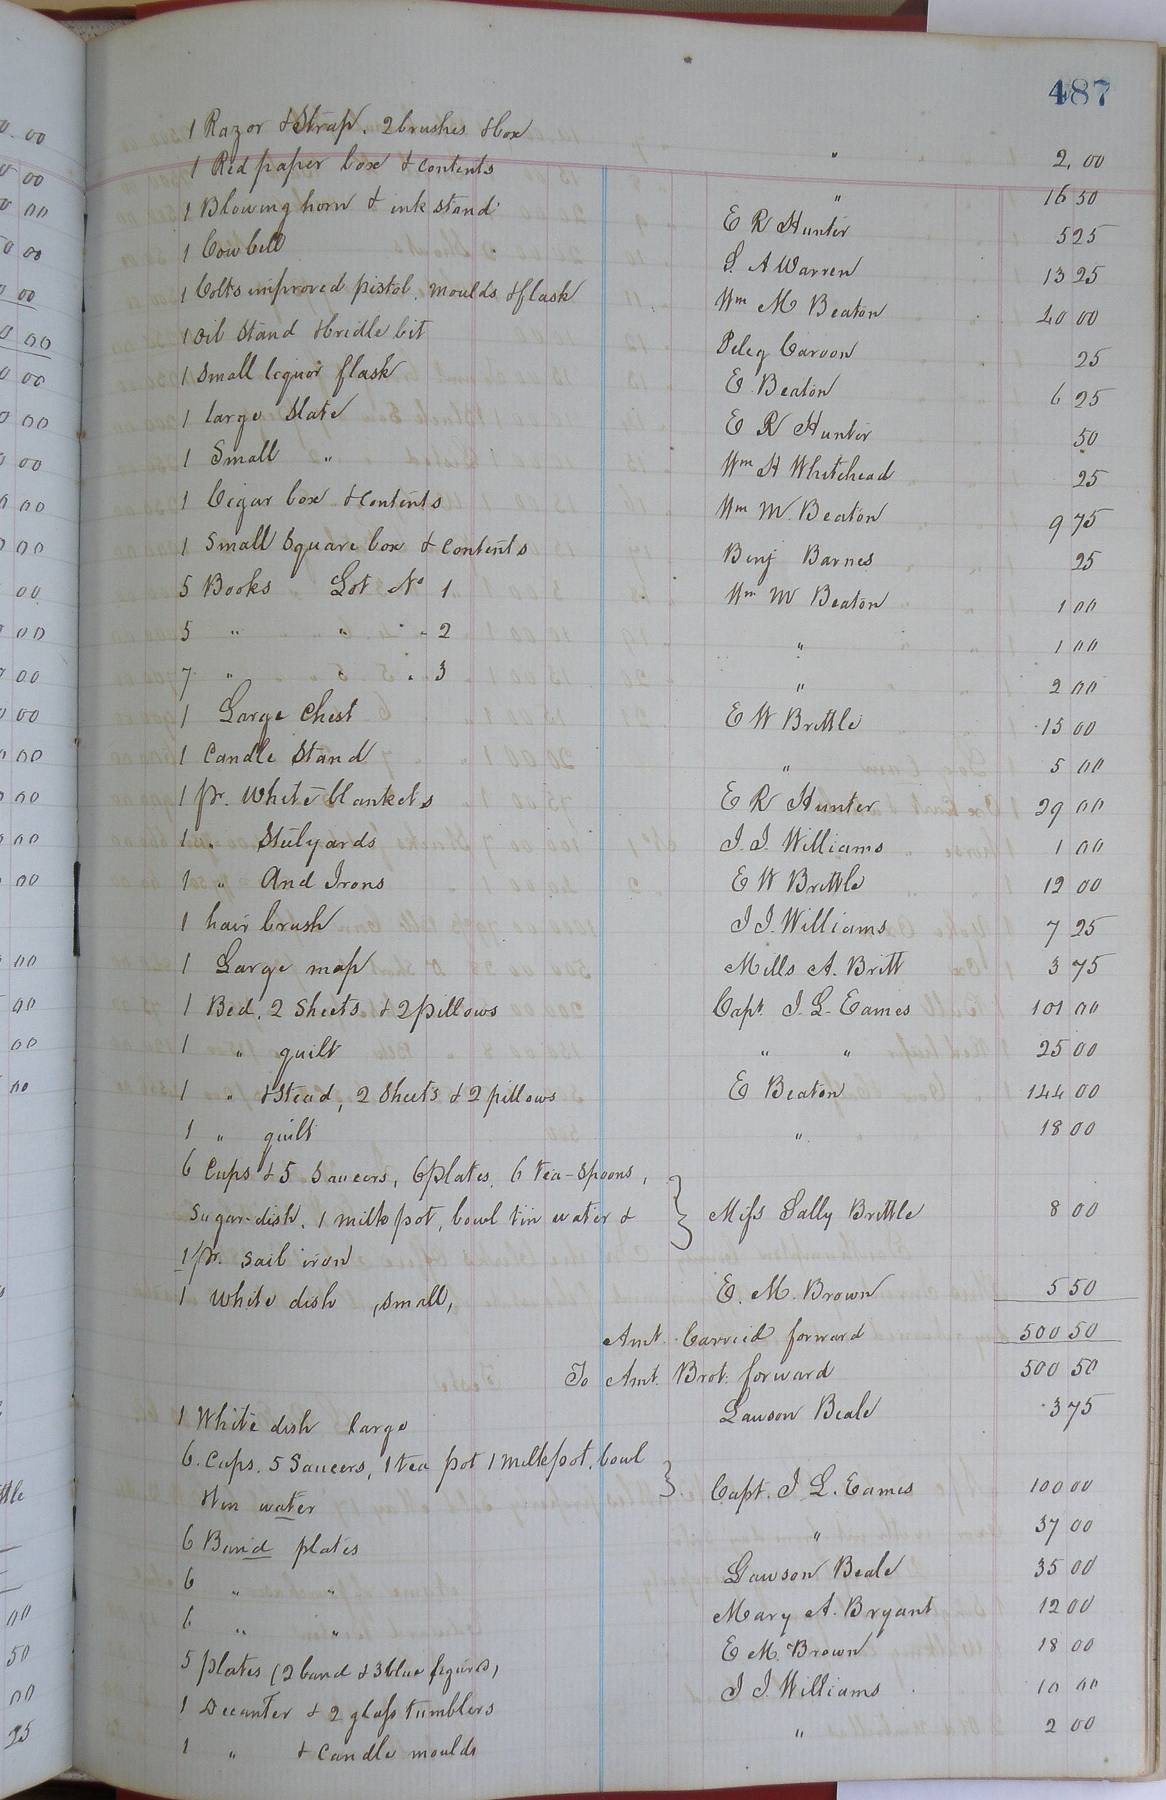 487
1 Razor & Strap. 2 brushes & box " 2,00
1 Red paper box & contents " 16 50
1 Blowing horn & ink stand E R Hunter 5 25
1 Cow bell S. A Warren 13 25
1 Colts improved pistol, moulds & flask Wm M Beaton 40 00
1 oil Stand & bridle bit Peleg 25
1 Small liquor flask E. Beaton 6 25
1 large Slate E R Hunter 50
1 Small " Wm H Whitehead 25
1 Cigar box & contents Wm M. Beaton 9 75
1 Small Square box & contents Benj Barnes 25
5 Books Lot No 1 Wm M Beaton 1 00
5 " " " 2 " 1 00
7 " " " 3 " 2 00
1 Large Chest E W Brittle 15 00
1 Candle Stand " 5 00
1 pr. White blankets E R Hunter 29 00
1 " Stilyards J. J. Williams 1 00
1 " And Irons E W Brittle 12 00
1 hair brush J J. Williams 7 25
1 Large map Mills A. Britt 3 75
1 Bed, 2 Sheets & 2 pillows Capt. J. L. Eames 101 00
1 " quilt " " 25 00
1 " & Stead, 2 Sheets & 2 pillows E Beaton 144 00
1 " quilt " 18 00
6 Cups & 5 Saucers, 6 plates, 6 tea-spoons,
Sugar-dish, 1 milk pot, bowl tin water & } Miss Sally Brittle 8 00
1 pr. sail iron
1 White dish (small, E. M. Brown 5 50
Amt. Carried forward 500 50
To Amt. Brot. forward 500 50
1 White dish large Lawson Beale 3 75
6. Cups. 5 Saucers, 1 tea pot 1 milk pot, bowl
& tin water } Capt. J. L. Eames 100 00
6 Band plates " 37 00
6 " " Lawson Beale 35 00
6 " " Mary A. Bryant 12 00
5 plates (2 band & 3 blue figured, E M. Brown 18 00
1 Decanter & 2 glass tumblers J J. Williams 10 00
1 " & candle moulds " 2 00